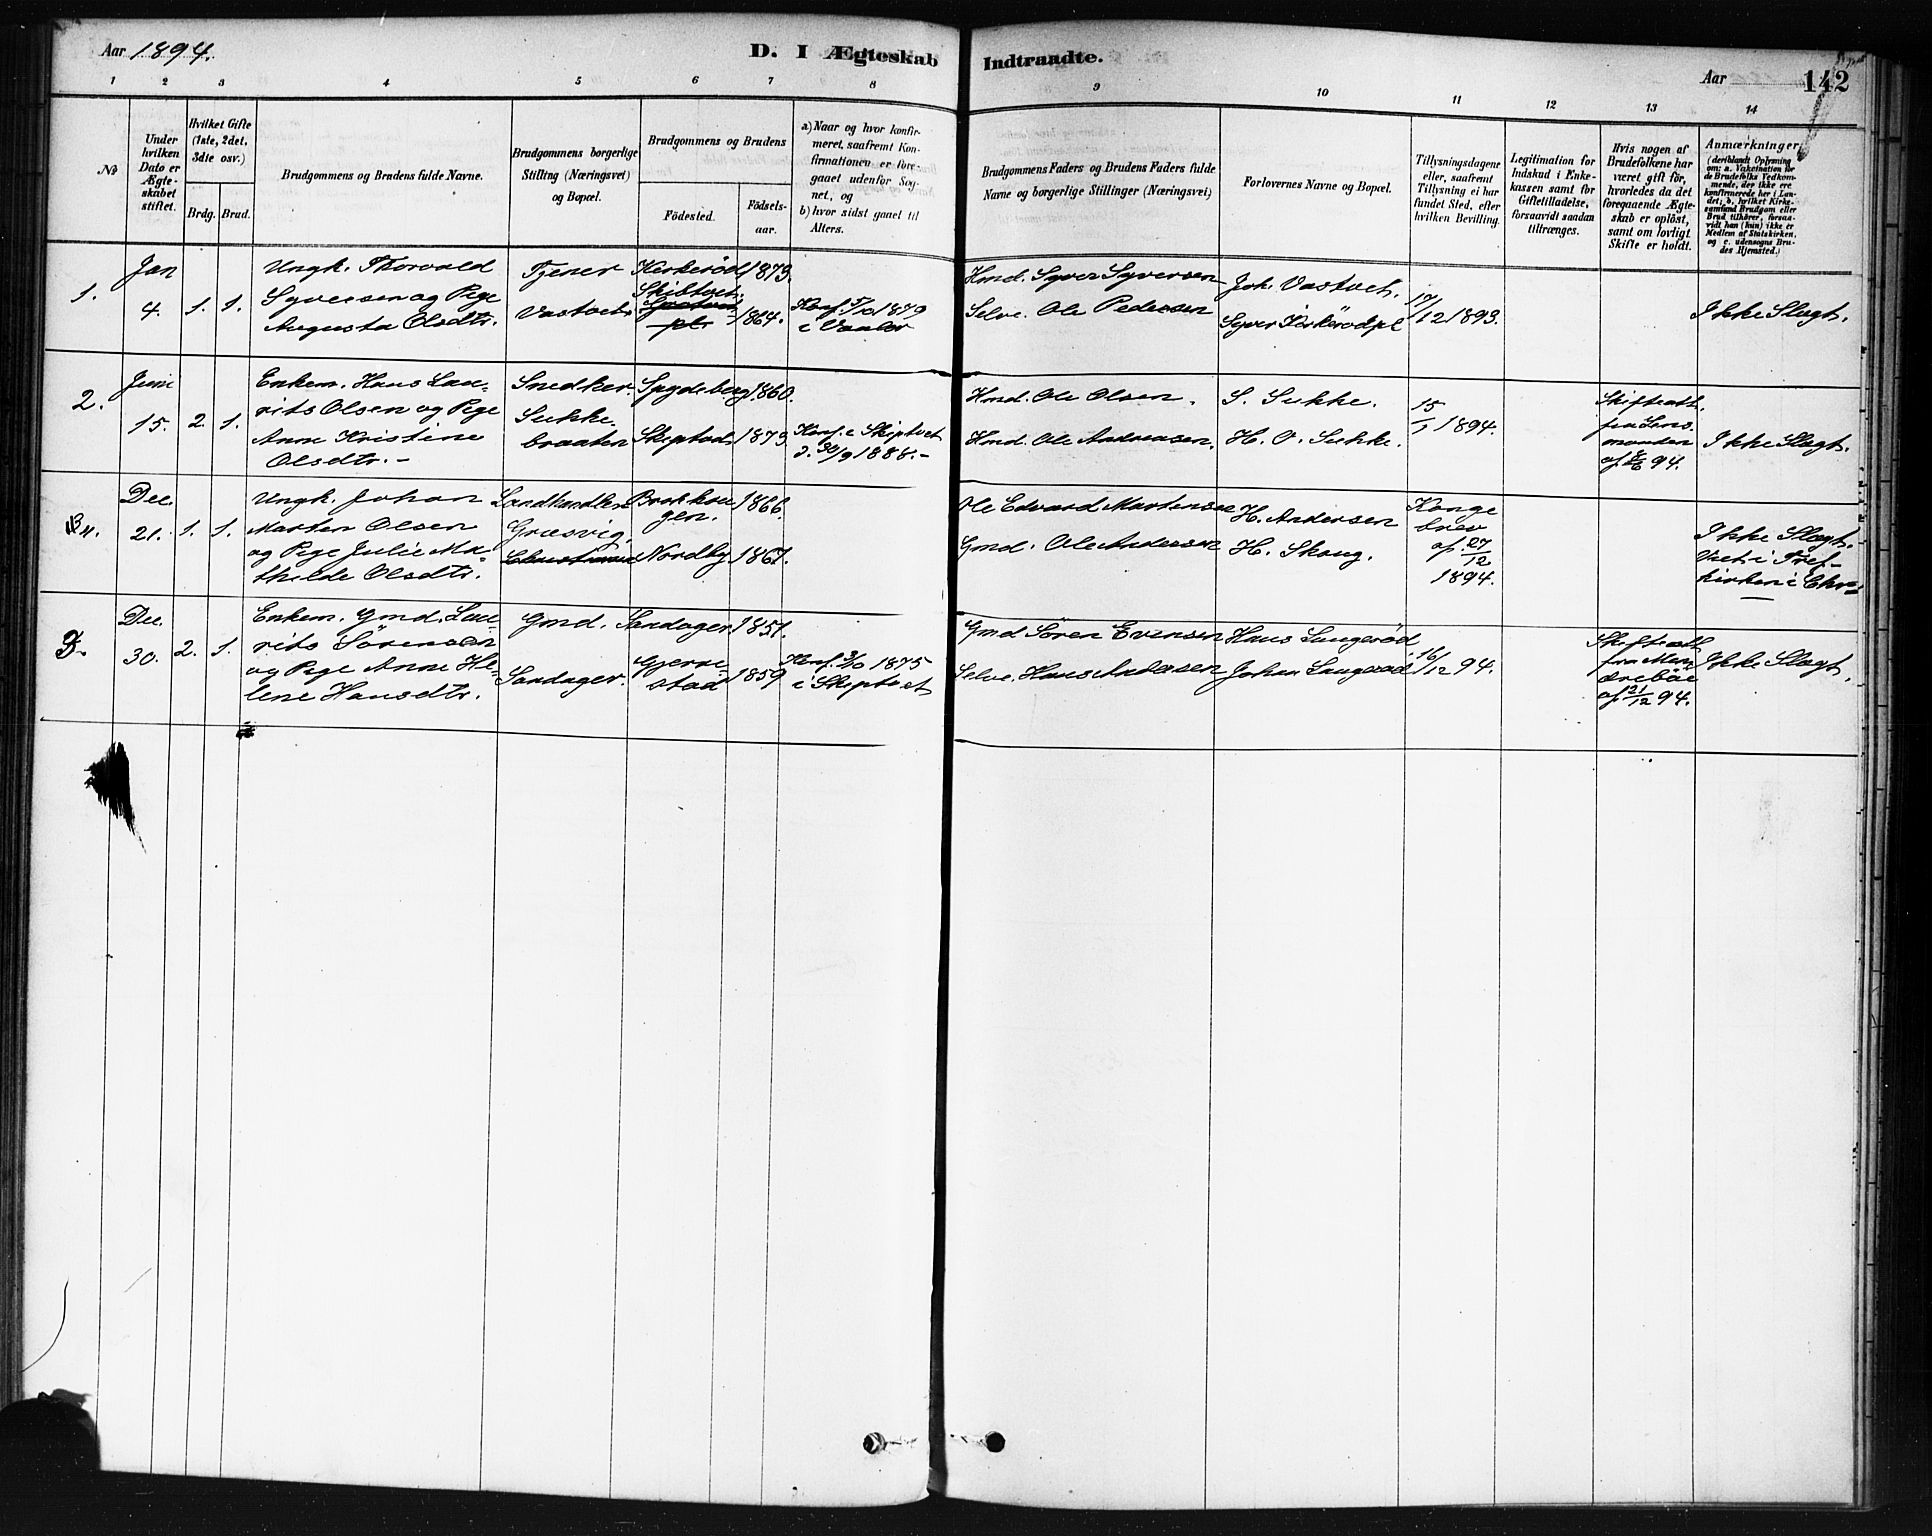 Aar 1894.
D. I Ægteskab Indtraadte.
Aar
142
1 2 3 4 5 6 7 8 9 10 11 12 13 14
No
Under hvilken Dato er Ægteskabet stiftet.
Hvilket Gifte (1ste, 2det, 3die osv.)
Brdg. Brud.
Brudgommens og Brudens fulde Navne.
Brudgommens borgerlige Stilling (Næringsvei) og Bopæl.
Brudgommens og Brudens
Födested.
Födselsaar.
a) Naar og hvor konfirmeret, saafremt Konfirmationen er foregaaet udenfor Sognet, og
b) hvor sidst gaaet til Alters.
Brudgommens Faders og Brudens Faders fulde Navne og borgerlige Stillinger (Næringsvei)
Forlovernes Navne og Bopæl.
Tillysningsdagene eller, saafremt Tillysning ei har fundet Sted, efter hvilken Bevilling.
Legitimation for Indskud i Enkekassen samt for Giftetilladelse, forsaavidt saadan tiltrænges.
Hvis nogen af Brudefolkene har været gift för, hvorledes da det foregaaende Ægteskab er oplöst, samt om lovligt Skifte er holdt.
Anmærkninger
(deriblandt Oplysning om: a. Vakcination for de Brudefolks Vedkommende, der ikke ere konfirmerede her i Landet; b. hvilket Kirkesamfund Brudgom eller Brud tilhører, forsaavidt han (hun) ikke er Medlem af Statskirken, og c. udensogns Brudes Hjemsted.)
1.
Jan
4.
1. 1.
Ungk. Thorvald
Syversen og Pige
Augusta Olsdtr.
Tjener
Vastvet
Kirkeröd 1873.
Skibtvet
1864.
Konf. 5/10 1879
i Vaaler
Hmd. Syver Syversen
Selve. Ole Pedersen
Joh. Vastvet.
Syver Kirkerödpl
17/12 1893.
Ikke Slægt.
2.
Juni
15.
2. 1.
Enkem. Hans Lau-
rits Olsen og Pige
Anne Kristine
Olsdtr. -
Snedker
Sukke
braaten
Spydeberg 1860.
Skiptvd. 1873.
Konf. i Skiptvet
d. 30/9 1888. -
Hmd. Ole Olsen.
Hmd. Ole Andreasen.
S. Sukke.
H. O. Sukke.
15/1 1894.
Skifteatt.
fra Lens
manden
af 94.
Ikke Slægt.
4.
Dec.
21.
1. 1.
Ungk. Johan
Marten Olsen
og Pige Julie Ma-
thilde Olsdtr.
Landhandler
Græsvig,
Nordby 1867.
1866.
Ole Edvard Martensen
Gmd. Ole Andersen
H. Andersen
H. Skaug.
Konge
brev
af. 27/12
1894.
Ikke Slægt.
Viet i Tref-
kirken i Chr-a
5.
Dec.
30.
2. 1.
Enkem. Gmd. Lau-
rits Sörensen
og Pige Anne He-
lene Hansdtr.
Gmd.
Sandager.
Sandager 1851.
Gjerre
stad 1859
Konf. 3/10 1875
i Skiptvet
Gmd Sören Evensen
Selve. Hans Andersen
Hans Langeröd
Johan Langeröd
16/12 94.
Skifteatt
fra
af 21/12 94.
Ikke Slægt.